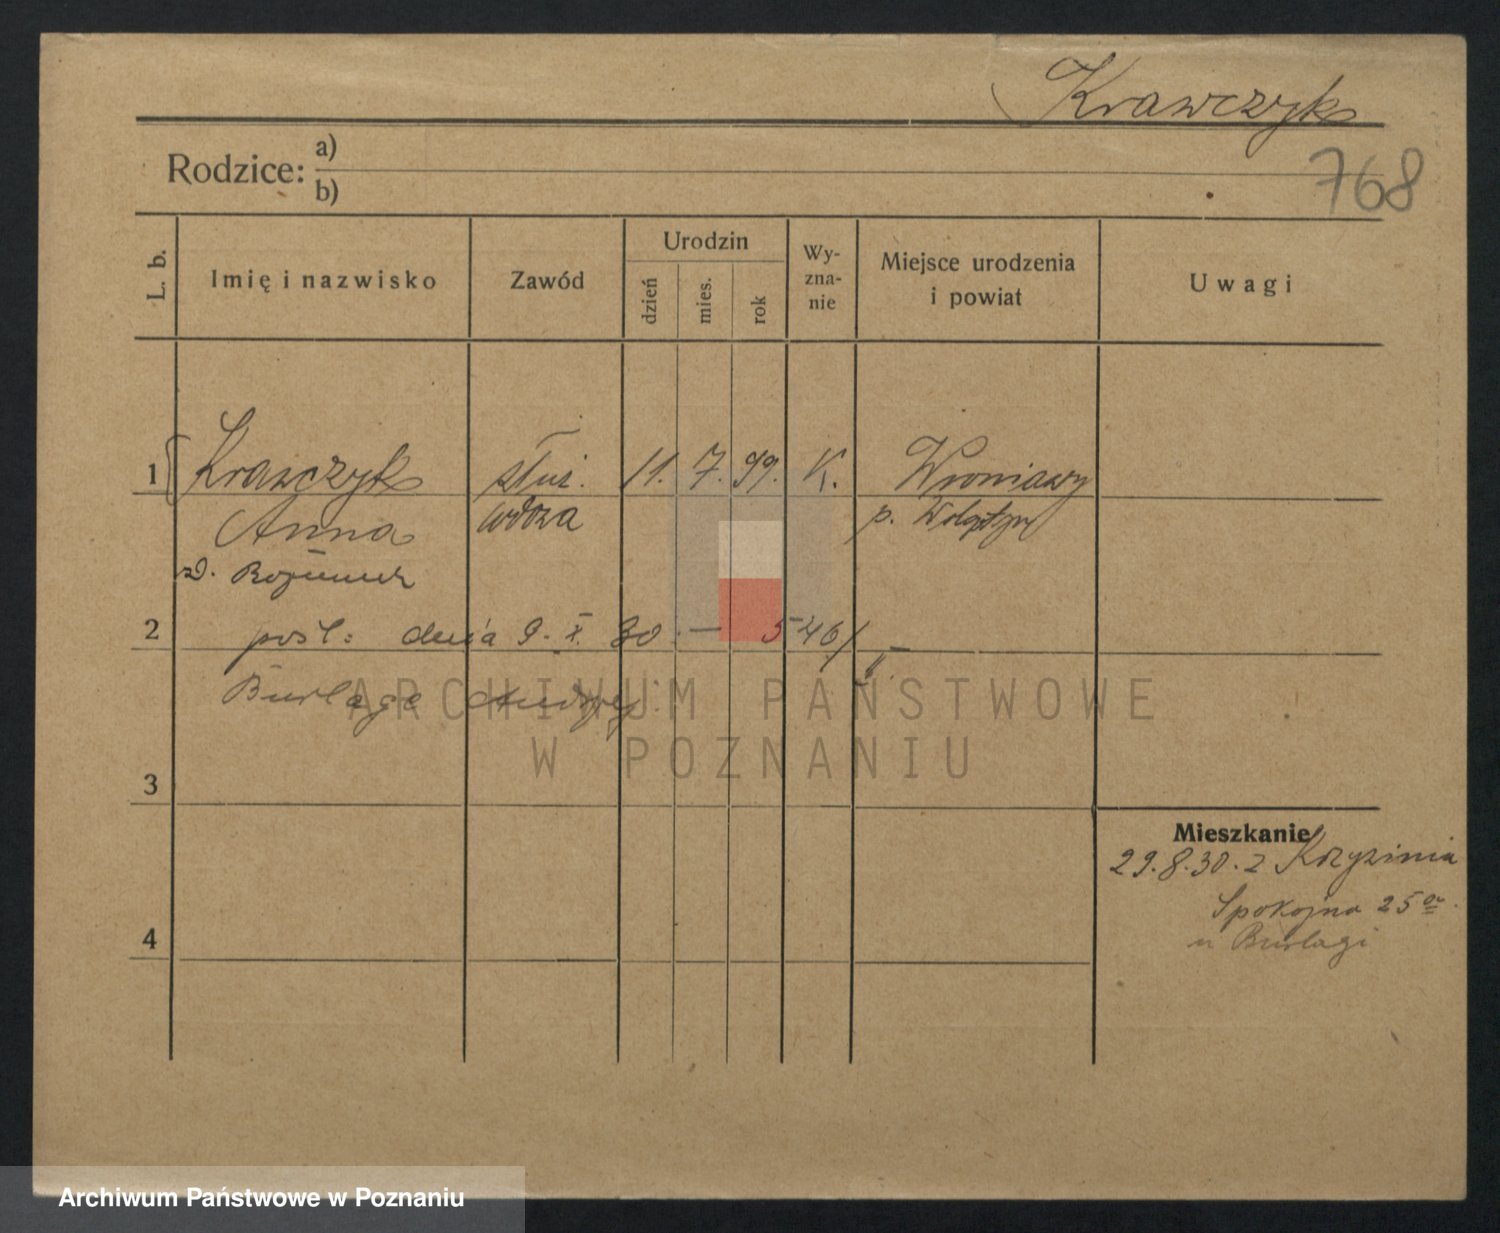 Krawczyk
768
Rodzice: a)
b)
L. b.
Imię i nazwisko
Zawód
Urodzin
dzień
mies.
rok
Wy-
zna-
nie
Miejsce urodzenia
i powiat
Uwagi
1 Krawczyk służ. 11. 7. 99. K. Wroniawy
Anna wdowa p. Wolsztyn
2 pośl: dnia 9. X. 30. — 546/
Burlage Andrzej
ARCHIWUM PAŃSTWOWE
W POZNANIU
3
Mieszkanie
29.8.30. z
Spokojna 25
4 u Burlagi
Archiwum Państwowe w Poznaniu